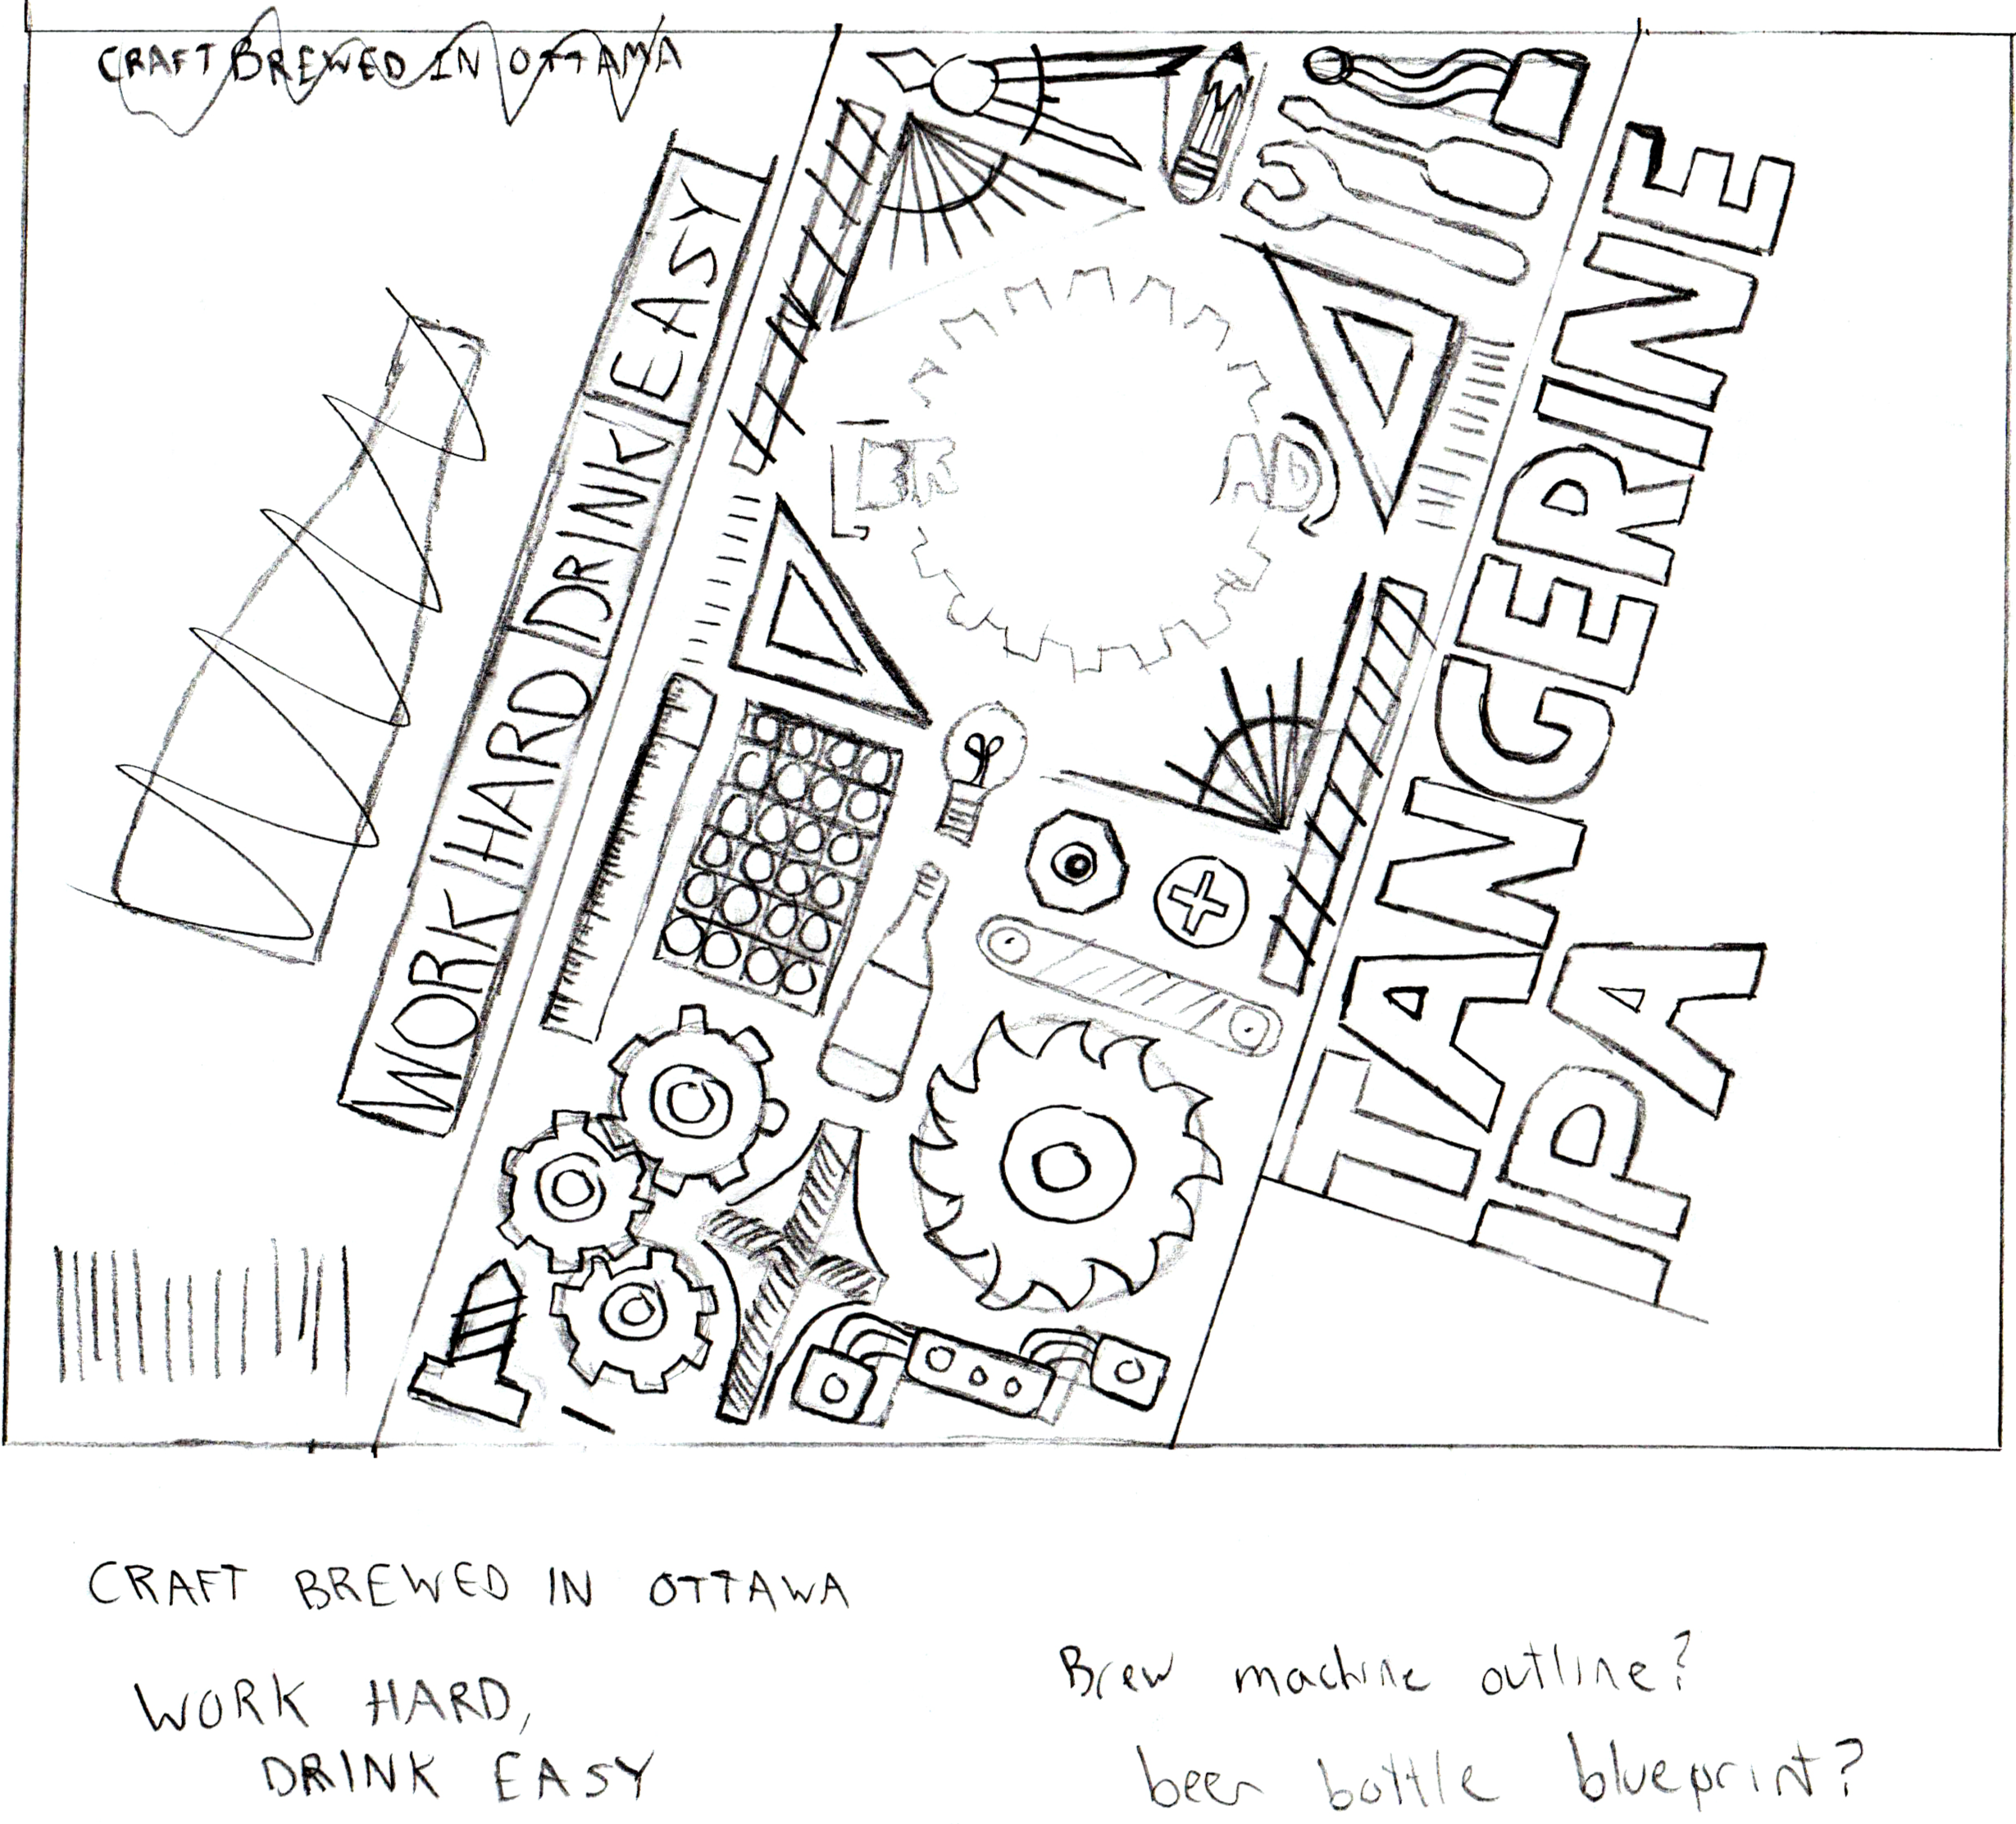 CRAFT BREWED IN OTTAWA
WORK HARD DRINK EASY
BR AD
TANGERINE
IPA
CRAFT BREWED IN OTTAWA
WORK HARD,
DRINK EASY
Brew machine outline?
beer bottle blueprint?